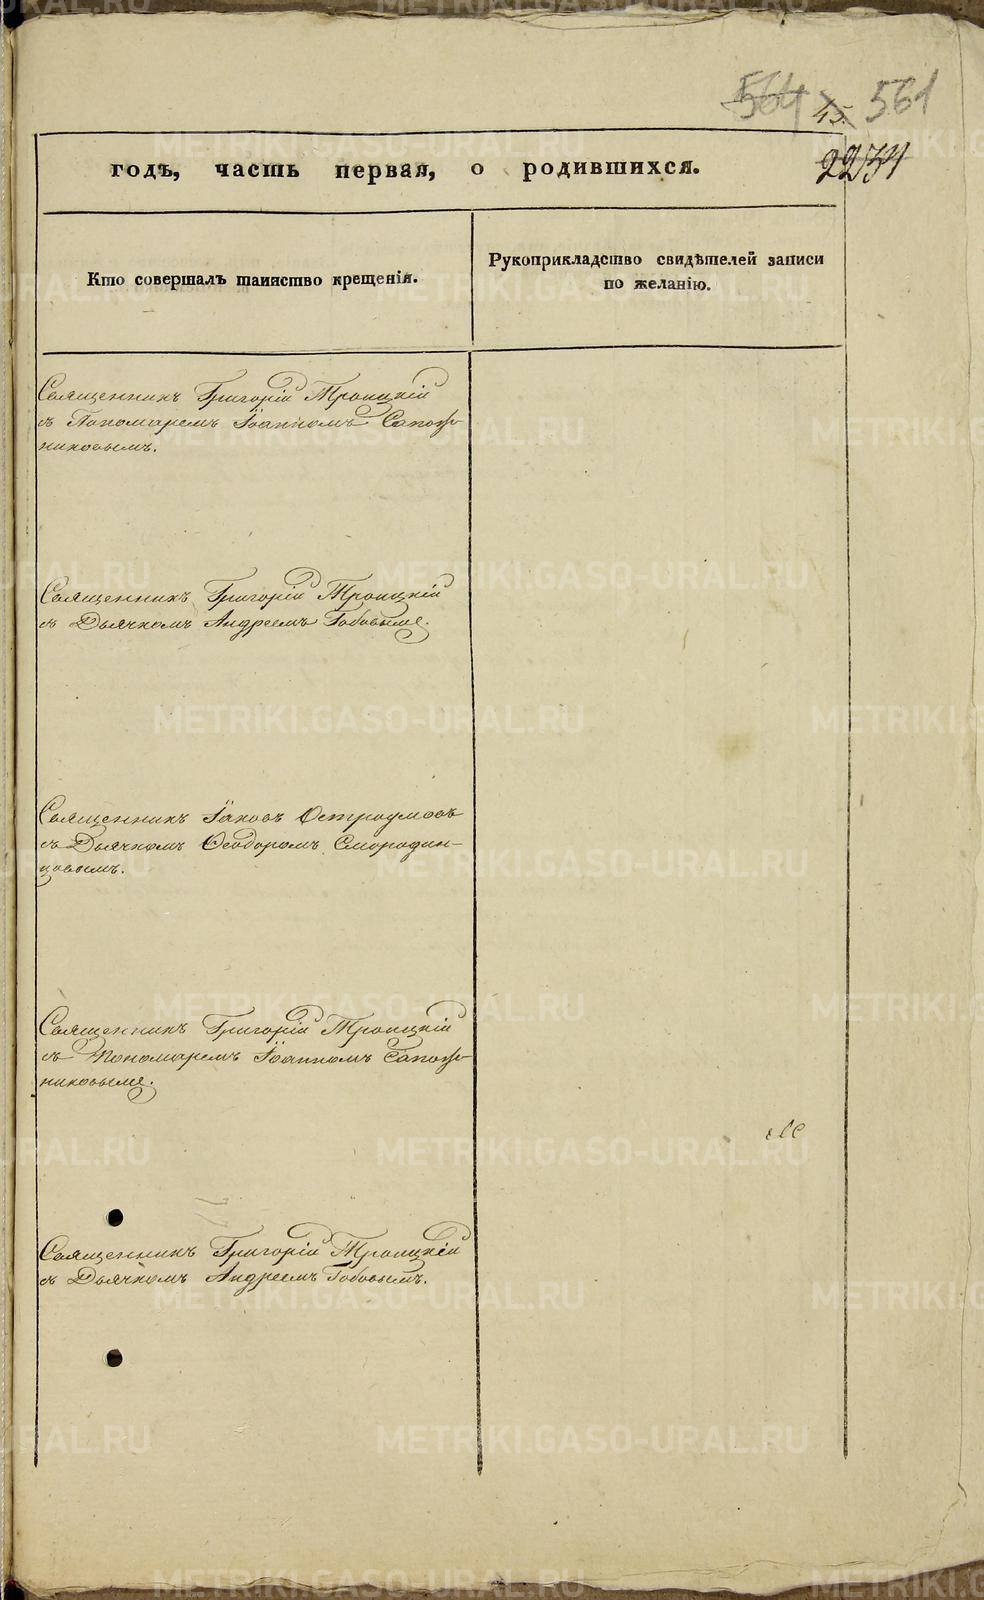 564 45. 561
2234
годъ, часть первая, о родившихся.
Кто совершалъ таинство крещенія.
Рукоприкладство свидѣтелей записи
по желанію.
Священникъ Григорій Троицкій
съ Пономаремъ Іоанномъ Сапож-
никовымъ.
Священникъ Григорій Троицкій
съ Дьячкомъ Андреемъ Бобовымъ.
Священникъ Іаковъ Остроумовъ
съ Дьячкомъ Ѳеодоромъ Смородин-
цовымъ.
Священникъ Григорій Троицкій
съ Пономаремъ Іоанномъ Сапож-
никовымъ.
Священникъ Григорій Троицкій
съ Дьячкомъ Андреемъ Бобовымъ.
METRIKI.GASO-URAL.RU